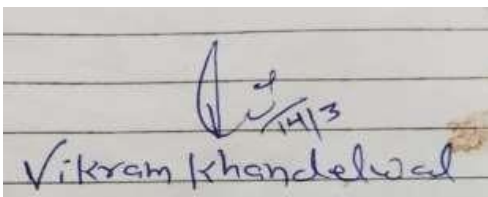 14/3
Vikram Khandelwal